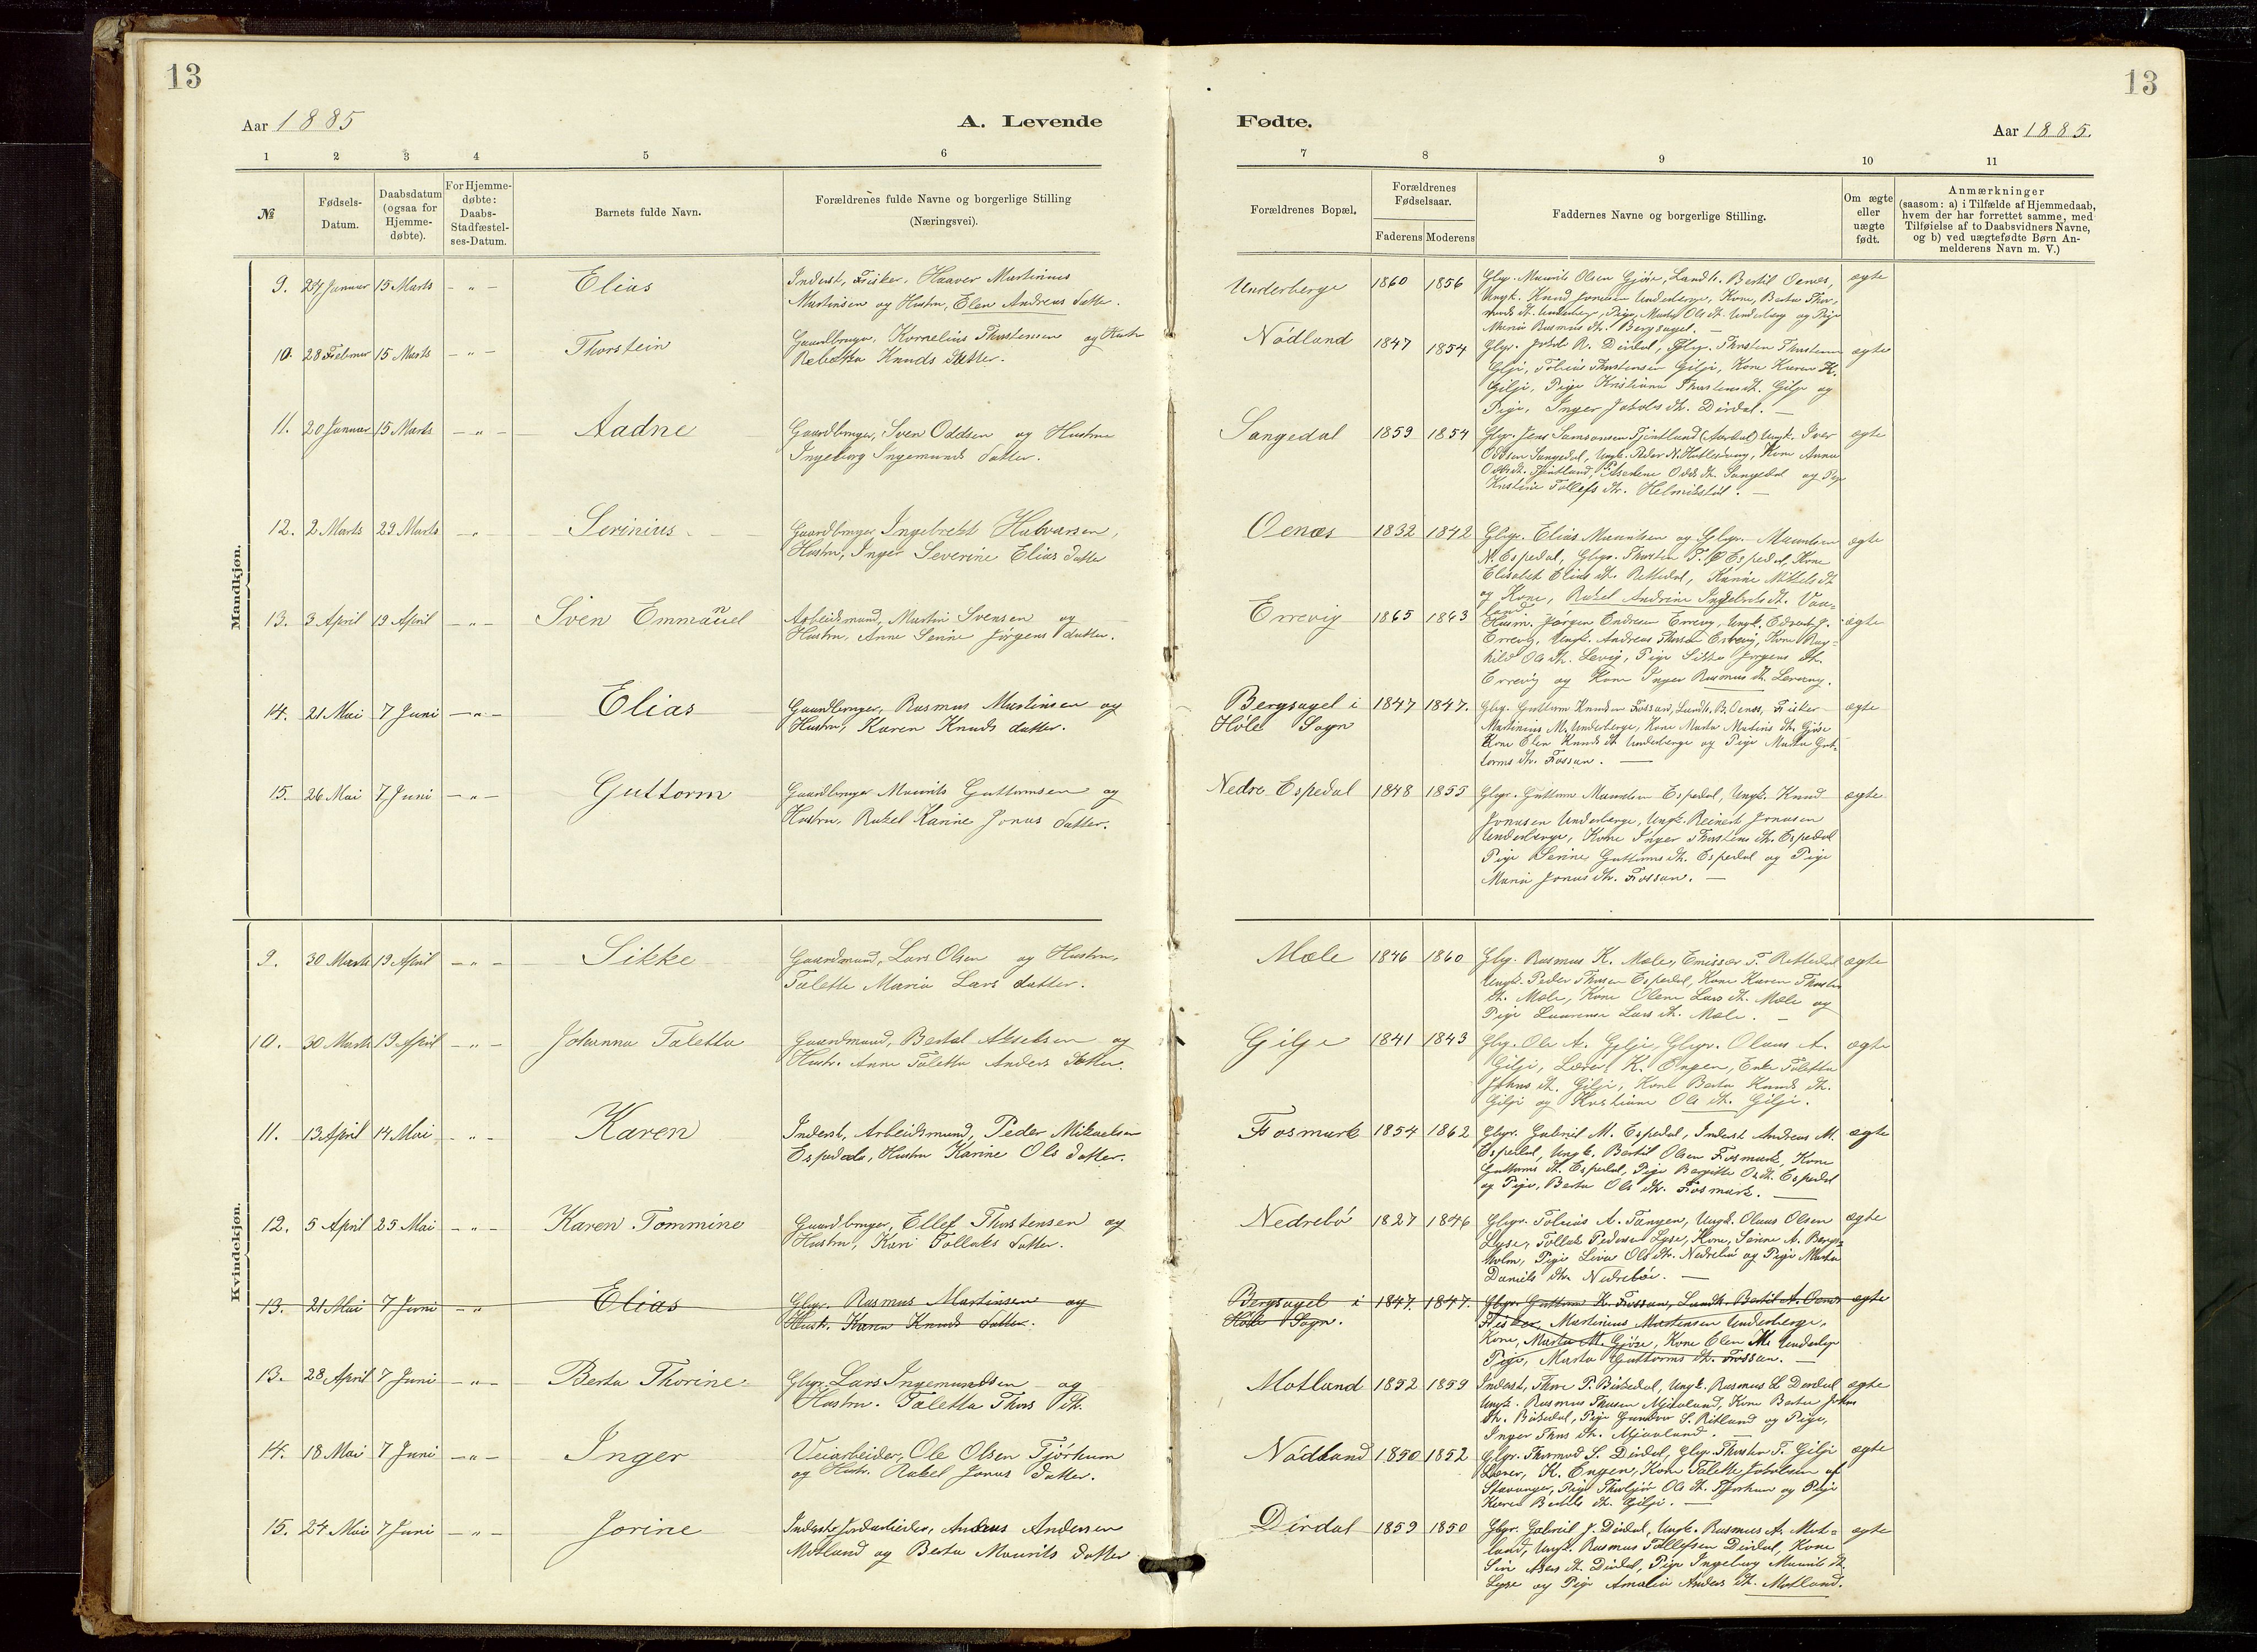 13
13
Aar 1885
A. Levende
Fødte.
Aar 1885.
1 2 3 4 5 6
7 8 9 10 11
№
Fødsels-Datum.
Daabsdatum (ogsaa for Hjemme-døbte).
For Hjemme-døbte: Daabs-Stadfæstel-ses-Datum.
Barnets fulde Navn.
Forældrenes fulde Navne og borgerlige Stilling
(Næringsvei).
Forældrenes Bopæl.
Forældrenes Fødselsaar.
Faderens Moderens
Faddernes Navne og borgerlige Stilling.
Om ægte eller uægte født.
Anmærkninger
(saasom: a) i Tilfælde af Hjemmedaab,
hvem der har forrettet samme, med
Tilføielse af to Daabsvidners Navne,
og b) ved uægtefødte Børn An-
melderens Navn m. V.)
Mandkjøn.
9. 24 Januar 15 Marts - " - Elias
Inderst, Fisker, Haaver Martinius
Martinsen og Hustru, Elen Andreas datter.
Underberge 1860 1856
Gbgr. Maurits Olsen Gjøse, Landh. Bertil Oenæs,
Ungk. Knud Jonassen Underberge, Kone, Berta
ægte
10. 28 Februar 15 Marts - " - Thorstein
Gaardbruger, Kornelius Thorstensen og Hustr
Rebekka Knuds datter.
Nødland 1847 1854
Gbgr. Jakob R. Dirdal, Gbgr. Thorsten Thorstensen
Gilje, Tobias Thorstensen Gilje, Kone Karen K.
Gilje, Pige Kristiane Thorstens dt. Gilje og
Pige, Inger Jakobs dt. Dirdal. -
ægte
11. 20 Januar 15 Marts - " - Aadne
Gaardbruger, Sven Oddsen og Hustru
Ingeborg Ingemunds datter.
Sangedal 1859 1854
Gbgr. Jens Samsonsen Fjintland (Aardal) Ungk. Iver
Oddsen Sangedal, Ungk. Peder
Kristine Tollefs dt. Helmikstøl. -
ægte
12. 2 Marts 29 Marts - " - Serinius
Gaardbruger Ingebrekt Halvorsen,
Hustru, Inger Severine Elias datter
Oenæs 1832 1842
Gbgr. Elias Mauritsen og Gbgr. Mauritsen
N. Espedal, Gbgr. Thorsten T. Espedal, Kone
Elisabet Elias dt. Rettedal, Karine Mikkels dt
og Kone, Rakel Andrine Ingebrets dt. Vaa-
land.
ægte
13. 3 April 19 April - " - Sven Emmanuel
Arbeidsmand, Martin Svensen og
Hustru, Anne Serine Jørgens datter.
Errevig 1865 1863
Husm. Jørgen Endresen Errevig, Ungk. Edvard J.
Errevig, Ungk. Andreas Thorsen Errevig, Kone Rag-
hild Ols dt. Levig, Pige Sikke Jørgens dt.
Errevig og Kone Inger Rasmus dt.
ægte
14. 21 Mai 7 Juni - " - Elias
Gaardbruger, Rasmus Martinsen og
Hustru, Karen Knuds datter.
Bergsagel i
Høle Sogn
1847 1847.
Gbgr. Guttorm Knudsen Fossan, Landh. B. Oenæs, Fisker
Martinius M. Underberge, Kone Marta Matias dt. Gjøse
Kone Elen Knuds dt Underberge og Pige Marta Gut-
torms dt. Fossan. -
ægte
15. 26 Mai 7 Juni - " - Guttorm
Gaardbruger Maurits Guttormsen og
Hustru, Rakel Karine Jonas datter.
Nedre Espedal 1848 1855
Gbgr. Guttorm Mauritsen Espedal, Ungk. Knud
Jonasen Underberge, Ungk. Reinert Jonasen
Underberge, Kone Inger Thorstens dt. Espedal
Pige Serine Guttorms dt. Espedal og Pige
Maria Jonas dt. Fossan. -
ægte
Kvindekjøn.
9. 30 Marts 19 April - " - Sikke
Gaardmand, Lars Olsen og Hustru,
Talette Maria Lars datter.
Mæle 1846 1860
Gbgr. Rasmus K. Mæle, Emissær T. Rettedal
Ungk. Peder Thorsen Espedal, Kone Karen Thorsten
dt. Mæle, Kone Olene Lars dt. Mæle og
Pige Laurense Lars dt. Mæle. -
ægte
10. 30 Marts 19 April - " - Johanna Taletta
Gaardmand, Bertel Akselsen og
Hustr. Anne Taletta Anders datter.
Gilje 1841 1843
Gbgr. Ole A. Gilje, Gbgr. Olaus A.
Gilje, Lærer K. Engen, Enke Taletta
Johns dt. Gilje, Kone Berta Knuds dt.
Gilje og Kristiane Ols dt. Gilje.
ægte
11. 13 April 14 Mai - " - Karen
Inderst, Arbeidsmand, Peder Mikaelsen
Espedal, Hustru Karine Ols datter.
Fosmark 1854 1862
Gbgr. Gabriel M. Espedal, Inderst Andreas M.
Espedal, Ungk. Bertil Olsen Fosmark, Kone
Guttorms dt. Espedal, Pige Bergitte Os dt. Espedal
og Pige, Berta Ols dt. Fosmark. -
ægte
12. 5 April 25 Mai - " - Karen Tommine
Gaardbruger, Ellef Thorstensen og
Hustru, Kari Tollaks datter.
Nedrebø 1827 1846
Gbgr. Tobias A. Tangen, Ungk. Olaus Olsen
Lyse, Tollak Pedersen Lyse, Kone, Serine A. Bergs-
holm, Pige Livia Ols dt. Nedrebø og Pige Marta
Daniels dt. Nedrebø. -
ægte
13. 21 Mai 7 Juni - " Elias
Gbgr. Rasmus Martinsen og
Hustr. Karen Knuds datter.
Bergsagel i
Høle Sogn.
1847. 1847.
Gbgr. Guttorm K. Fossan, Landh. Bertil A. Oenæs
Fisker, Martinius Martinsen Underberge,
Kone, Marta M. Gjøse, Kone Elen M. Underberge
Pige, Marta Guttorms dt. Fossan. -
ægte
13. 28 April 7 Juni - " - Berta Thorine
Gbgr. Lars Ingemundsen og
Hustru. Taletta Thors dt.
Motland 1852 1859
Inderst, Thore P. Birkedal, Ungk. Rasmus L Dirdal
Ungk. Rasmus Thorsen Mjaaland, Kone Berta Johns
dt. Birkedal, Pige Gundvor S. Ritland og Pige,
Inger Thors dt. Mjaaland. -
ægte
14. 18 Mai 7 Juni - " - Inger
Veiarbeider, Ole Olsen Tjørhum
og Hustr. Rakel Jonas datter.
Nødland 1850 1852
Gbgr. Thormod S. Dirdal, Gbgr. Thorsten T. Gilje
Lærer, K. Engen, Kone Talette Jakobsen af
Stavanger, Pige Ols dt. Tjørhum og Pige
Karen Bertils dt. Gilje. -
ægte
15. 24 Mai 7 Juni - " - Jorine
Inderst Jordarbeider, Anders Andersen
Motland og Berta Maurits datter
Dirdal 1859 1850
Gbgr. Gabriel J. Dirdal, Ungk. Rasmus A. Mot-
land, Ungk. Rasmus Tollefsen Dirdal, Kone
Siri Asers dt. Dirdal, Pige Ingeborg Maurits dt
Lyse og Pige Amalia Anders dt. Motland.
ægte